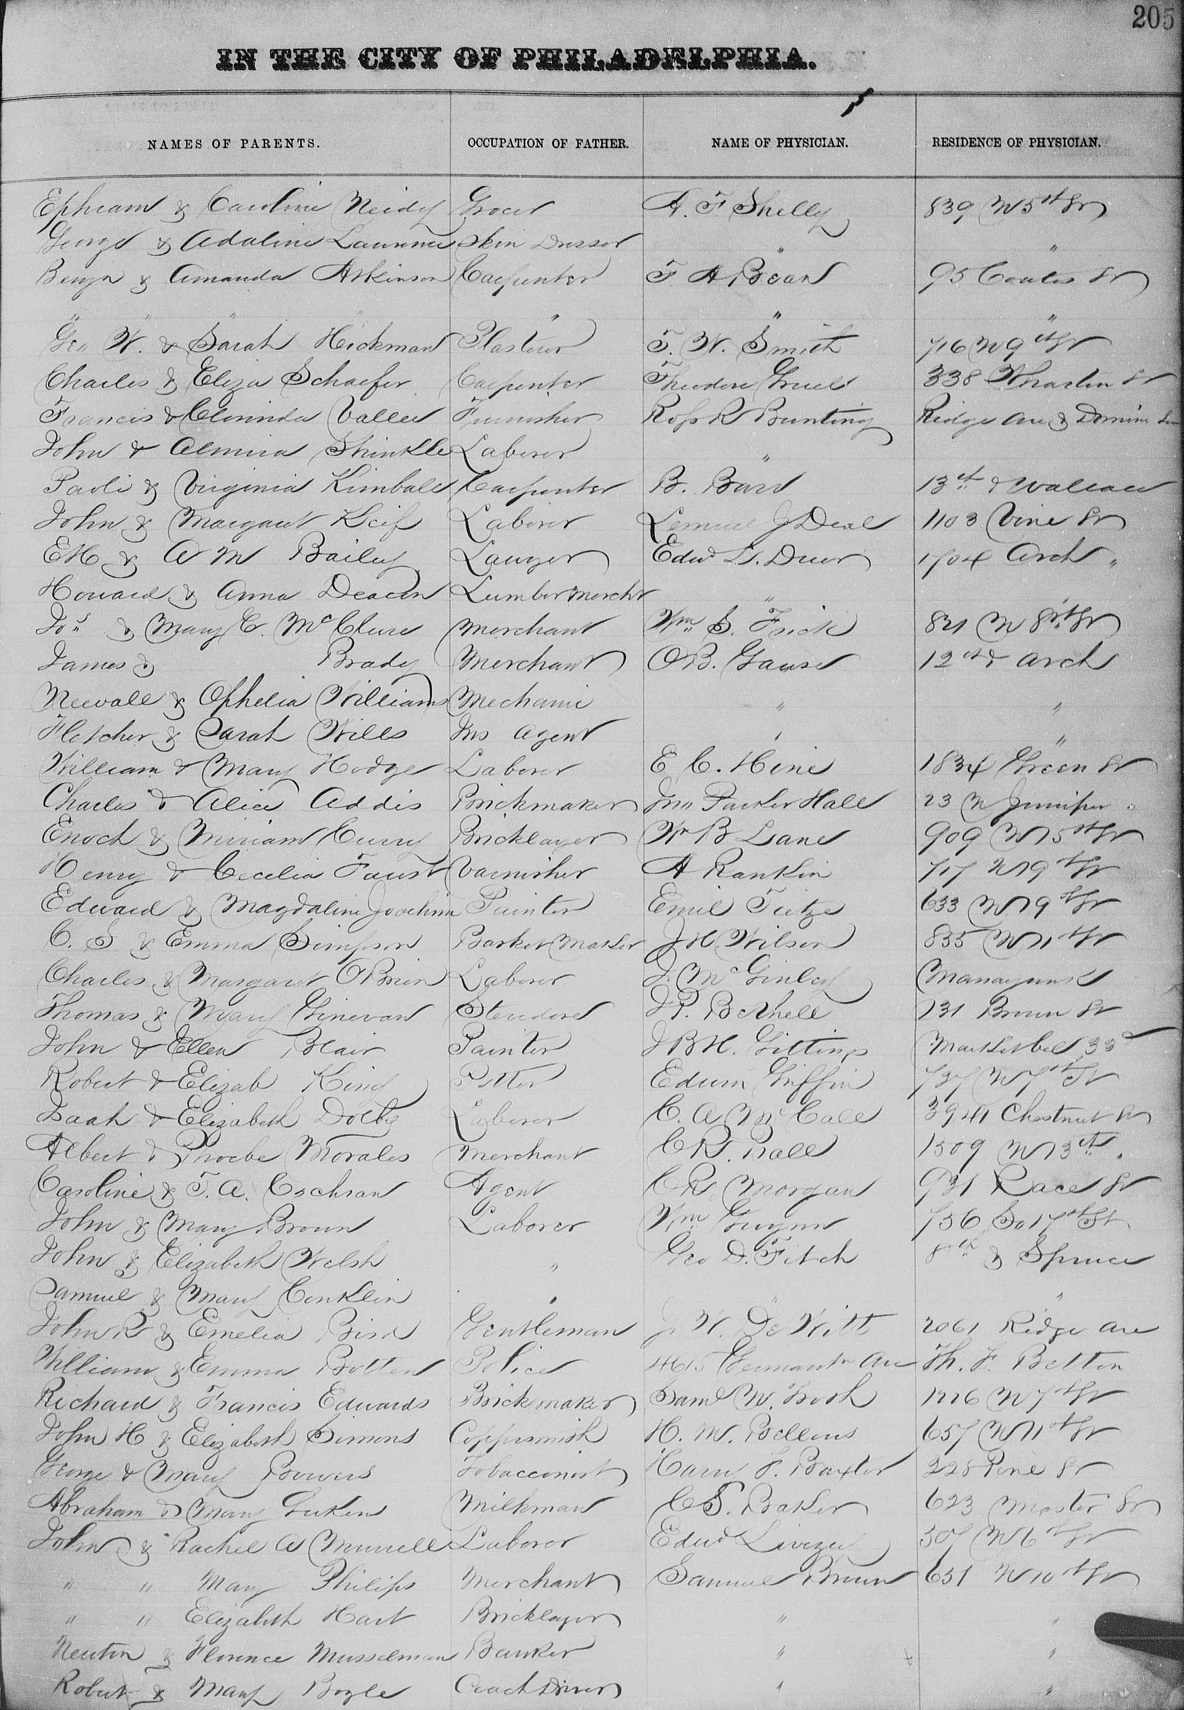 205
IN THE CITY OF PHILADELPHIA.
NAMES OF PARENTS. OCCUPATION OF FATHER. NAME OF PHYSICIAN. RESIDENCE OF PHYSICIAN.
Ephraim & Caroline Neidy Grocer A. F. Shelly 839 N 5th St
George & Adaline Lawrence Skin Dresser " "
Benjn & Amanda Atkinson Carpenter T A Bean 95 Coates St
" " " " "
Geo W. & Sarah Hickman Plasterer T. W. Smith 716 N 9th St
Charles & Eliza Schaefer Carpenter Theodore 338 Wharton St
Francis & Clorinda Vallee Furnisher Ross R Bunting Ridge Ave &
John & Almira Shinkle Laborer "
Paoli & Virginia Kimball Carpenter B. Barr 13th & Wallace
John & Margaret Keif Laborer Lemuel J Deal 1103 Vine St
EH & A M Bailey Lawyer Edwd L. Duer 1704 Arch "
Howard & Anna Deacon Lumber Mercht "
Jos & Mary C. McClure Merchant Wm S. Frick 821 N 8th St
James & Brady Merchant O.B. Gause 12th & Arch
Newall & Ophelia Williams Mechanic " "
Fletcher & Sarah Wills Ins Agent " "
William & Mary Hodge Laborer E C. Hine 1834 Green St
Charles & Alice Addis Brickmaker Jno Parker Hall 23 N Juniper "
Enoch & Miriam Curry Bricklayer W B Lane 909 N 15th St
Henry & Cecelia Faust Varnisher A Rankin 717 N 19th St
Edward & Magdaline Joachim Painter Emil Tietze 633 N 19th St
C. S & Emma Simpson Basket Maker J H Wilson 835 N 11th St
Charles & Margaret OBrien Laborer J. McGinley Manayunk
Thomas & Mary Ginevan Stevedore J P. Bethell 131 Brown St
John & Ellen Blair Painter J B H. Gittings Market bel 33d
Robert & Elizab King Potter Edwin Griffin 727 N 7th St
Isaah & Elizabeth Dolby Laborer C. A McCall 3941 Chestnut St
Albert & Phoebe Morales Merchant C R. Ball 1509 N 13th "
Caroline & T. A. Cochran Agent C R Morgan 931 Race St
John & Mary Brown Laborer Wm 756 So 17th St
John & Elizabeth Welsh " Geo D. Fitch 8th & Spruce
Samuel & Mary Conklin " " "
John R & Emelia Bird Gentleman J W. De Witt 2061 Ridge Ave
William & Emma Botten Police 4615 Germantn Ave Th. F. Betton
Richard & Francis Edwards Brickmaker Saml W. 1226 N 7th St
John H & Elizabeth Simons Coppersmith H. M. Bellows 657 N 11th St
George & Mary Bowers Tobacconist Harry F. Baxter 228 Pine St
Abraham & Mary Luken Milkman C S. Baker 623 Master St
John & Rachel A Murrell Laborer Edwd Livezey 507 N 6th St
" " Mary Philips Merchant Samuel Brown 651 N 10th St
" " Elizabeth Hart Bricklayer " "
Newton & Florence Musselman Banker " "
Robert & Mary Boyle Coach Driver " "